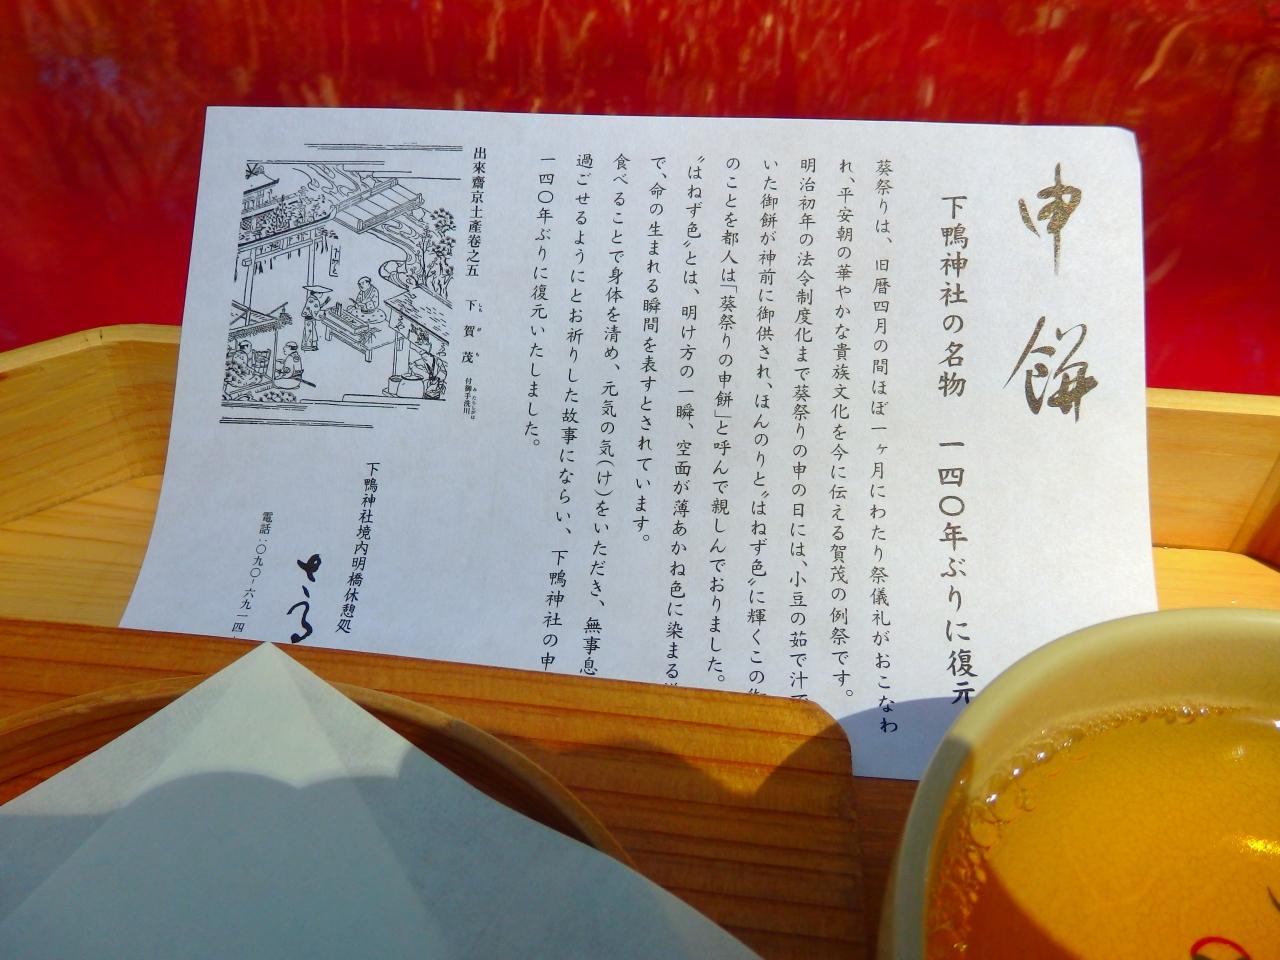 申餅
下鴨神社の名物　一四〇年ぶりに復元
葵祭りは、旧暦四月の間ほぼ一ヶ月にわたり祭儀礼がおこなわ
れ、平安朝の華やかな貴族文化を今に伝える賀茂の例祭です。
明治初年の法令制度化まで葵祭りの申の日には、小豆の茹で汁で
いた御餅が神前に御供され、ほんのりと〝はねず色〟に輝くこの
のことを都人は「葵祭りの申餅」と呼んで親しんでおりました。
〝はねず色〟とは、明け方の一瞬、空面が薄あかね色に染まる
で、命の生まれる瞬間を表すとされています。
食べることで身体を清め、元気の気(け)をいただき、無事息
過ごせるようにとお祈りした故事にならい、下鴨神社の申
一四〇年ぶりに復元いたしました。
出來齋京土產卷之五　下賀茂　付御手洗川
しもがも
みたらしがは
下鴨神社境内明橋休憩処
さるや
電話：〇九〇-六九一四